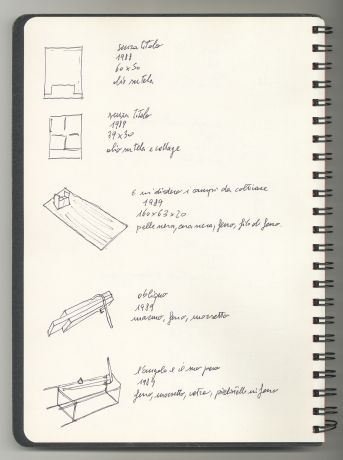 senza titolo
1988
60 x 50
olio su tela
senza titolo
1989
39 x 30
olio su tela e collage
E mi diedero i campi da coltivare
1989
160 x 63 x 20
pelle nera, cera nera, ferro, filo di ferro.
obliquo
1989
marmo, ferro, morsetto
l'angolo e il suo peso
1989
ferro, morsetto, vetro, piastrelle in ferro